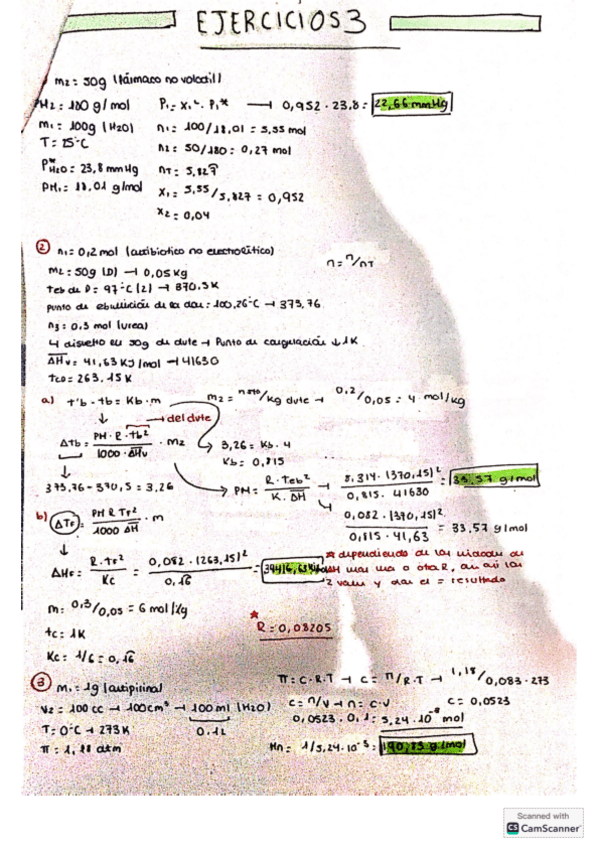 EJERCICIOS 3
m2 = 50g (fármaco no volátil)
PM2 = 180 g/mol
P1 = x1 · P1* → 0,952 · 23,8 = 22,66 mmHg
m1 = 100g (H2O)
n1 = 100/18,01 = 5,55 mol
T = 25°C
n2 = 50/180 = 0,27 mol
P*H2O = 23,8 mmHg
nT = 5,827
PM1 = 18,01 g/mol
x1 = 5,55/5,827 = 0,952
x2 = 0,04
② n1 = 0,2 mol (antibiotico no electrolítico)
n = n/nT
m2 = 50g (D) → 0,05 kg
Teb de D = 97°C (2) → 370.5K
punto de ebullición de la don = 100,26°C → 373,76
n3 = 0,3 mol (urea)
disuelto en 50g de dvte → Punto de congelación ↓ 1K
ΔHv = 41,63 KJ/mol → 41630
tco = 263.15K
a) t'b - tb = Kb · m
m2 = n/kg dvte → 0,2/0,05 = 4 mol/kg
→ del dvte
Δtb = PM · R · tb²/1000 · ΔHv · m2
3,26 = Kb · 4
Kb = 0,815
373,76 - 370,5 = 3,26
PM = R · Teb²/K · ΔH → 8,314 · (370,15)²/0,815 · 41630 = 33,57 g/mol
0,082 · (370,15)²/0,815 · 41,63 = 33,57 g/mol
b) ΔTf = PM R Tf²/1000 ΔH · m
ΔHf = R · tf²/Kc = 0,082 · (263,15)²/0,16 =
* dependiendo de las unidades de
ΔH usas una o otra R, aun así las
2 valen y dan el = resultado
m = 0,3/0,05 = 6 mol/kg
* R = 0,08205
tc = 1K
Kc = 1/6 = 0,16
③ m1 = 1g (antipirina)
π = C · R · T → C = π/R·T → 1,18/0,083 · 273
V2 = 100 cc → 100cm³ → 100ml (H2O)
C = n/V → n = C · V
C = 0,0523
T = 0°C → 273K
0.1L
0,0523 · 0,1 = 5,24 · 10⁻³ mol
π = 1,18 atm
Mn = 1/5,24·10⁻³ = 190,83 g/mol
Scanned with
CS CamScanner